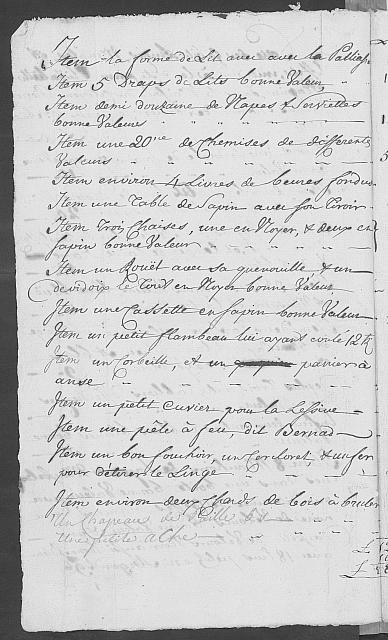 Item la forme de Lit avec avec la Palliasse
Item 5 Draps de Lits bonne Valeur
Item demi douzaine de Napes & Serviettes
bonne Valeurs
Item une 20ne de Chemises de differents
Valeurs
Item environ 4 Livres de beures fondus
Item une Table de Sapin avec son Tiroir
Item Trois Chaises, une en Noyer, & deux en
sapin bonne Valeur
Item un Rouët avec sa quenouille, & un
devidoir le tout en Noyer bonne Valeur
Item une Cassette en sapin bonne Valeur
Item un petit flambeau lui ayant couté 12
Item un Corbeille, et un panier à
anse
Item un petit cuvier pour la Lessive
Item une pêle à feu, dit Bernad
Item un bon , un , & un fer
pour détirer le Linge
Item environ deux Chards de bois à bruler
Un Chapeau de Paille
Une petite